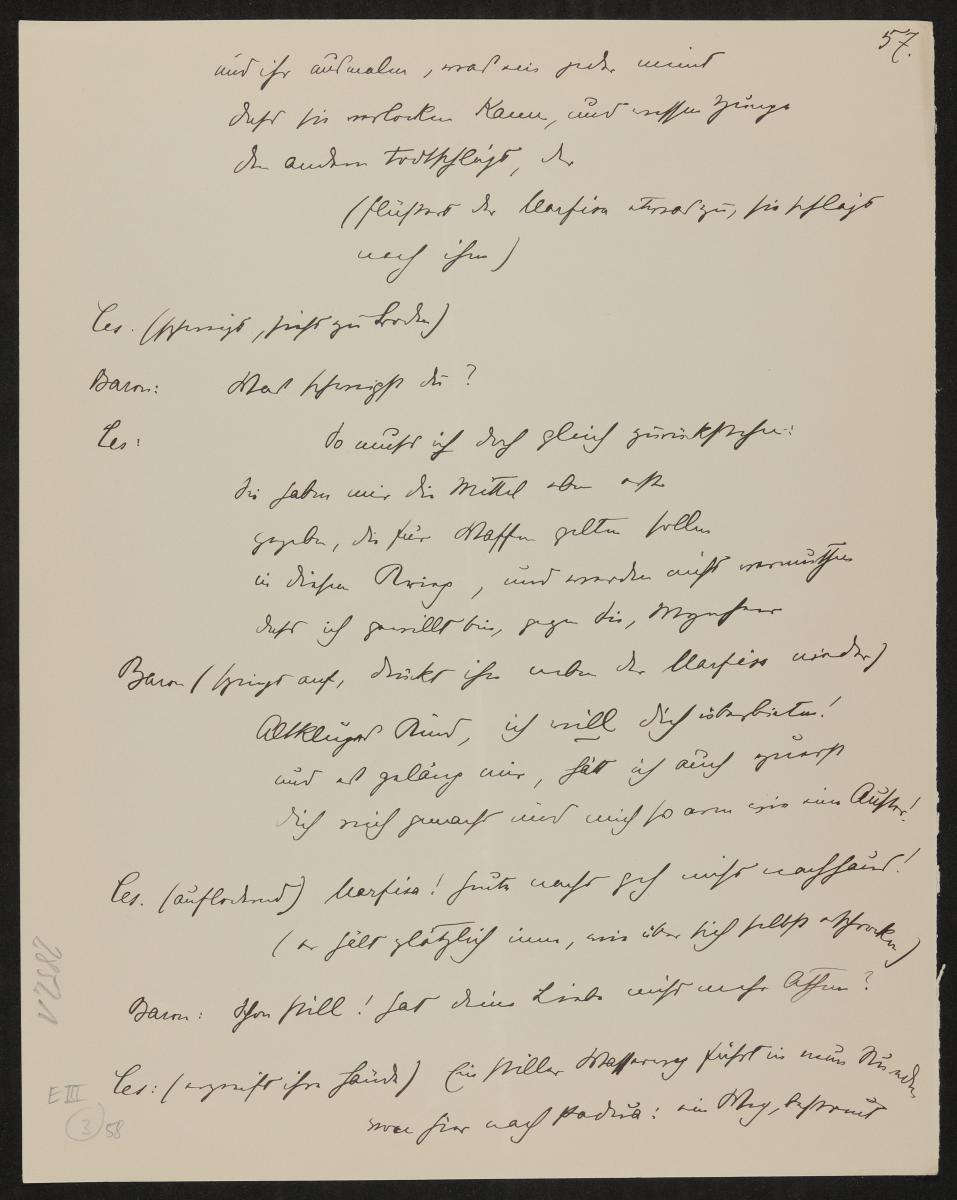 57.
und ihr ausmalen, was ein jeder meint
dass sie verlocken kann, und wessen Zunge
den andern todtschlägt, der
(flüstert der Marfisa etwas zu, sie schlägt
nach ihm)
Ces. (schweigt, sieht zu Boden)
Baron: Was schweigst du?
Ces: So muss ich doch gleich zurückstehn:
Sie haben mir die Mittel eben erst
gegeben, die für Waffen gelten sollen
in diesem Krieg, und werden nicht vermuthen
dass ich gewillt bin, gegen Sie, Mynheer
Baron (springt auf, drückt ihn neben der Marfisa nieder)
Altkluges Kind, ich will dich überbieten!
und es geläng mir, hätt ich auch zuerst
dich reich gemacht und mich so arm wie eine Auster!
Ces. (auflodernd) Marfisa! heute nacht geh nicht nachhaus!
(er hält plötzlich inne, wie über sich selbst erschrocken)
Baron: Schon still! hat deine Liebe nicht mehr Athem?
Ces: (ergreift ihre Hände) Ein stiller Wasserweg führt in neun Stunden
von hier nach Padua: ein Weg, bestreut
E III
3 58